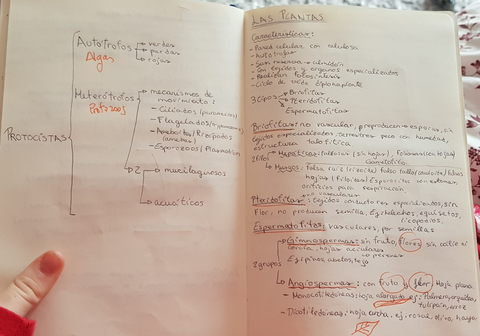 Autótrofos → verdes
→ pardas
→ rojas
Algas
Heterótrofos → mecanismos de
movimiento:
Protozoos
- Ciliados (paramecios)
- Flagelados
- Ameboides/Rizópodos
(amebas)
- Esporozoos (Plasmodium)
PROTOCISTAS
2 → mucilaginosos
→ acuáticos
LAS PLANTAS
Características:
- Pared celular con celulosa
- Autótrofas
- Sust. reserva → almidón
- Con tejidos y órganos especializados
- Realizan fotosíntesis
- Ciclo de vida diplohaplonte
3 Grupos → Briofitas
→ Pteridofitas
→ Espermatofitas
Briofitas: no vascular, reproducen → esporas, sin
tejidos especializados, terrestres pero con humedad,
estructura talofítica
2 filos → Hepáticas:
→ Musgos: falsa raíz (rizoide) falso tallo
hojas (filoides)
para respiración
Pteridofitas: tejidos conductores especializados, sin
flor, no producen semilla. Ej: helechos, equisetos,
licopodios.
Espermatofitas: vasculares, por semillas
→ Gimnospermas: sin fruto, flores sin cáliz ni
corola, hojas aciculares
2 grupos
Ej: pinos, abetos, tejo
→ perenne
→ Angiospermas: con fruto y flor. Hoja plana
→ Monocotiledóneas: hoja alargada ej: Palmera, orquídea,
tulipán, arroz
→ Dicotiledóneas: hoja ancha, ej: rosal, olivo, haya